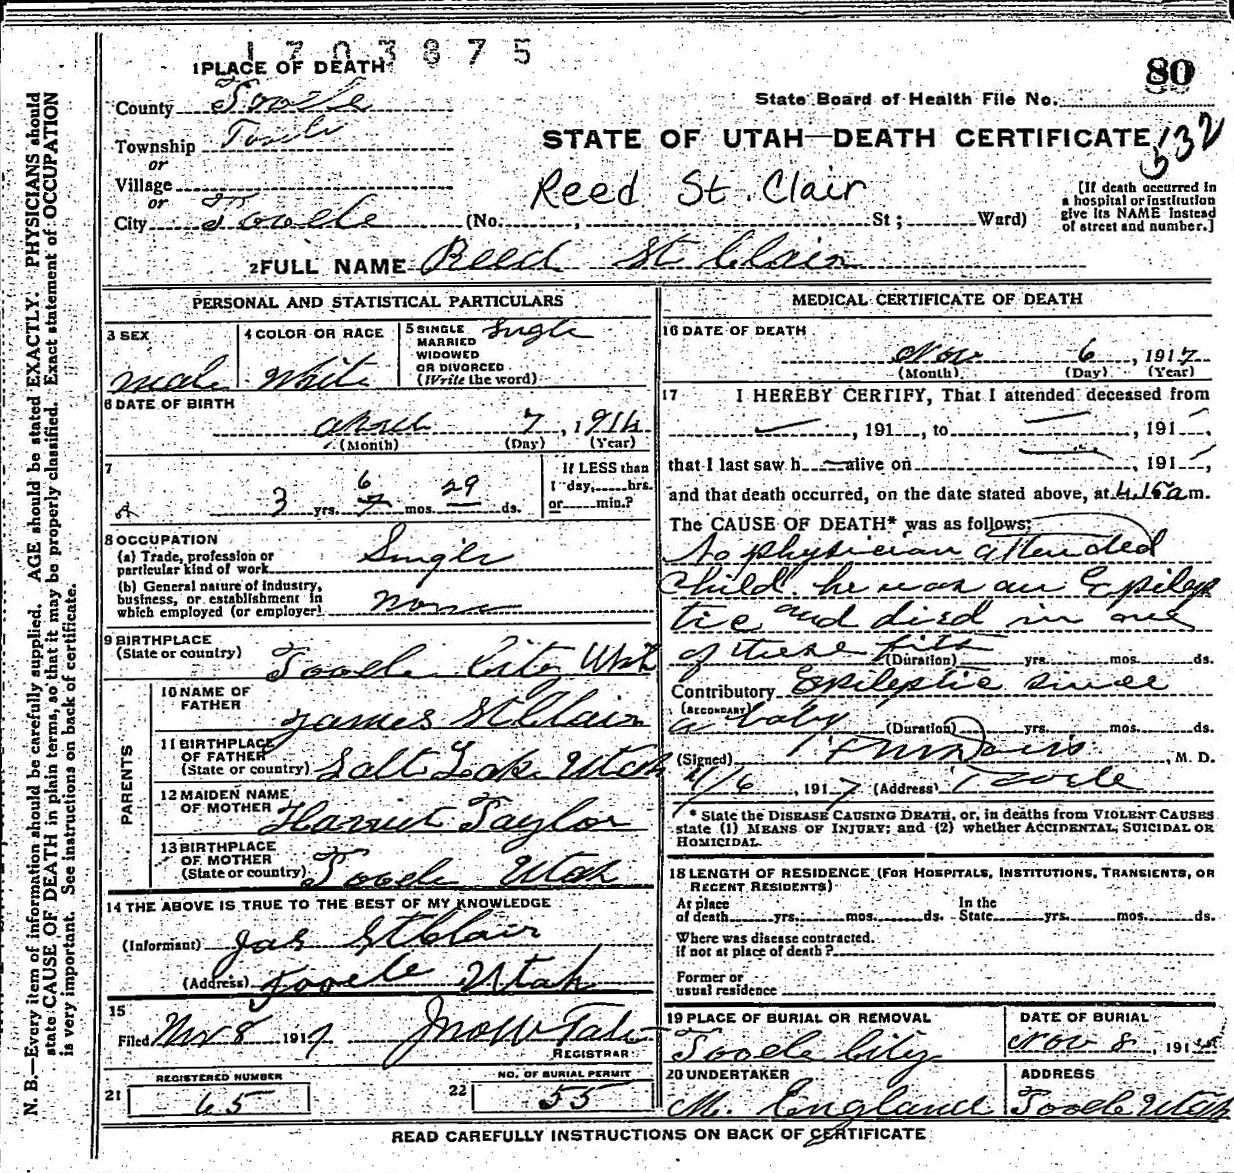 1703875
80
1 PLACE OF DEATH
County Tooele
State Board of Health File No.
Township Tooele
STATE OF UTAH—DEATH CERTIFICATE 532
or
Village
or
Reed St. Clair
[If death occurred in a hospital or institution give its NAME instead of street and number.]
City Tooele (No. , St ; Ward)
2 FULL NAME Reed St Clair
PERSONAL AND STATISTICAL PARTICULARS
3 SEX
male
4 COLOR OR RACE
White
5 SINGLE MARRIED WIDOWED OR DIVORCED (Write the word)
Single
6 DATE OF BIRTH
April 7, 1914
(Month) (Day) (Year)
7
3 yrs. 6 7 mos. 29 ds.
If LESS than 1 day, hrs. or min.?
8 OCCUPATION
(a) Trade, profession or particular kind of work Single
(b) General nature of industry, business, or establishment in which employed (or employer) None
9 BIRTHPLACE
(State or country) Tooele City Utah
PARENTS
10 NAME OF FATHER James St Clair
11 BIRTHPLACE OF FATHER (State or country) Salt Lake Utah
12 MAIDEN NAME OF MOTHER Harriet Taylor
13 BIRTHPLACE OF MOTHER (State or country) Tooele Utah
14 THE ABOVE IS TRUE TO THE BEST OF MY KNOWLEDGE
(Informant) Jas St Clair
(Address) Tooele Utah
15
Filed Nov 8 1917 Jno W Tate
REGISTRAR
REGISTERED NUMBER
21 65
NO. OF BURIAL PERMIT
22 55
MEDICAL CERTIFICATE OF DEATH
16 DATE OF DEATH
Nov 6, 1917
(Month) (Day) (Year)
17 I HEREBY CERTIFY, That I attended deceased from
, 191 , to , 191 ,
that I last saw h alive on , 191 ,
and that death occurred, on the date stated above, at 4.15 a m.
The CAUSE OF DEATH* was as follows:
No physician attended
child he was an Epilep
tic and died in one
of these fits
(Duration) yrs. mos. ds.
Contributory Epileptic since
(SECONDARY)
a baby (Duration) yrs. mos. ds.
(Signed) Davis, M. D.
11/6, 1917 (Address) Tooele
* State the DISEASE CAUSING DEATH, or, in deaths from VIOLENT CAUSES
state (1) MEANS OF INJURY; and (2) whether ACCIDENTAL, SUICIDAL OR
HOMICIDAL.
18 LENGTH OF RESIDENCE (FOR HOSPITALS, INSTITUTIONS, TRANSIENTS, OR
RECENT RESIDENTS)
At place of death yrs. mos. ds. In the State yrs. mos. ds.
Where was disease contracted,
if not at place of death?
Former or
usual residence
19 PLACE OF BURIAL OR REMOVAL
Tooele City
DATE OF BURIAL
Nov 8, 191
20 UNDERTAKER
M. England
ADDRESS
Tooele Utah
READ CAREFULLY INSTRUCTIONS ON BACK OF CERTIFICATE
N. B.—Every item of information should be carefully supplied. AGE should be stated EXACTLY. PHYSICIANS should
state CAUSE OF DEATH in plain terms, so that it may be properly classified. Exact statement of OCCUPATION
is very important. See instructions on back of certificate.